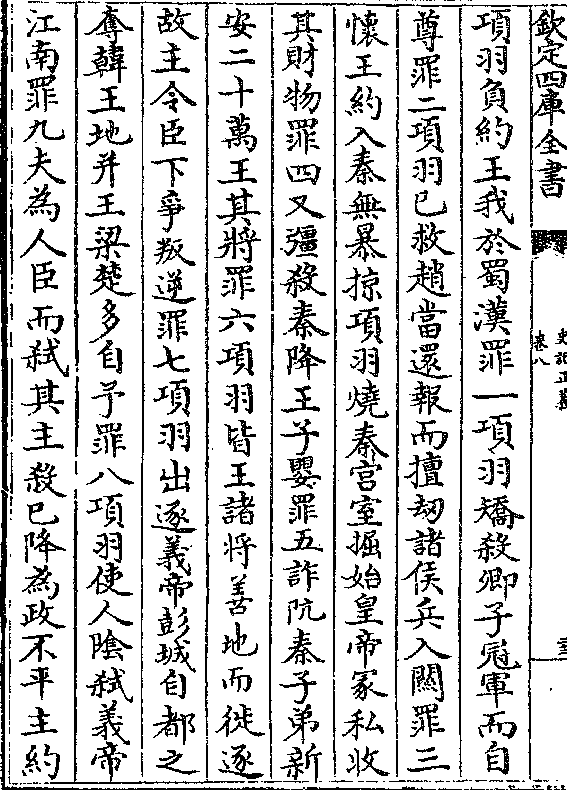 欽定四庫全書
史記正義
卷八
項羽負約王我於蜀漢罪一項羽矯殺卿子冠軍而自
尊罪二項羽已救趙當還報而擅刼諸侯兵入關罪三
懷王約入秦無暴掠項羽燒秦宫室掘始皇帝冢私收
其財物罪四又彊殺秦降王子嬰罪五詐阬秦子弟新
安二十萬王其將罪六項羽皆王諸將善地而徙逐
故主令臣下爭叛逆罪七項羽出逐義帝彭城自都之
奪韓王地并王梁楚多自予罪八項羽使人隂弑義帝
江南罪九夫為人臣而弑其主殺已降為政不平主約